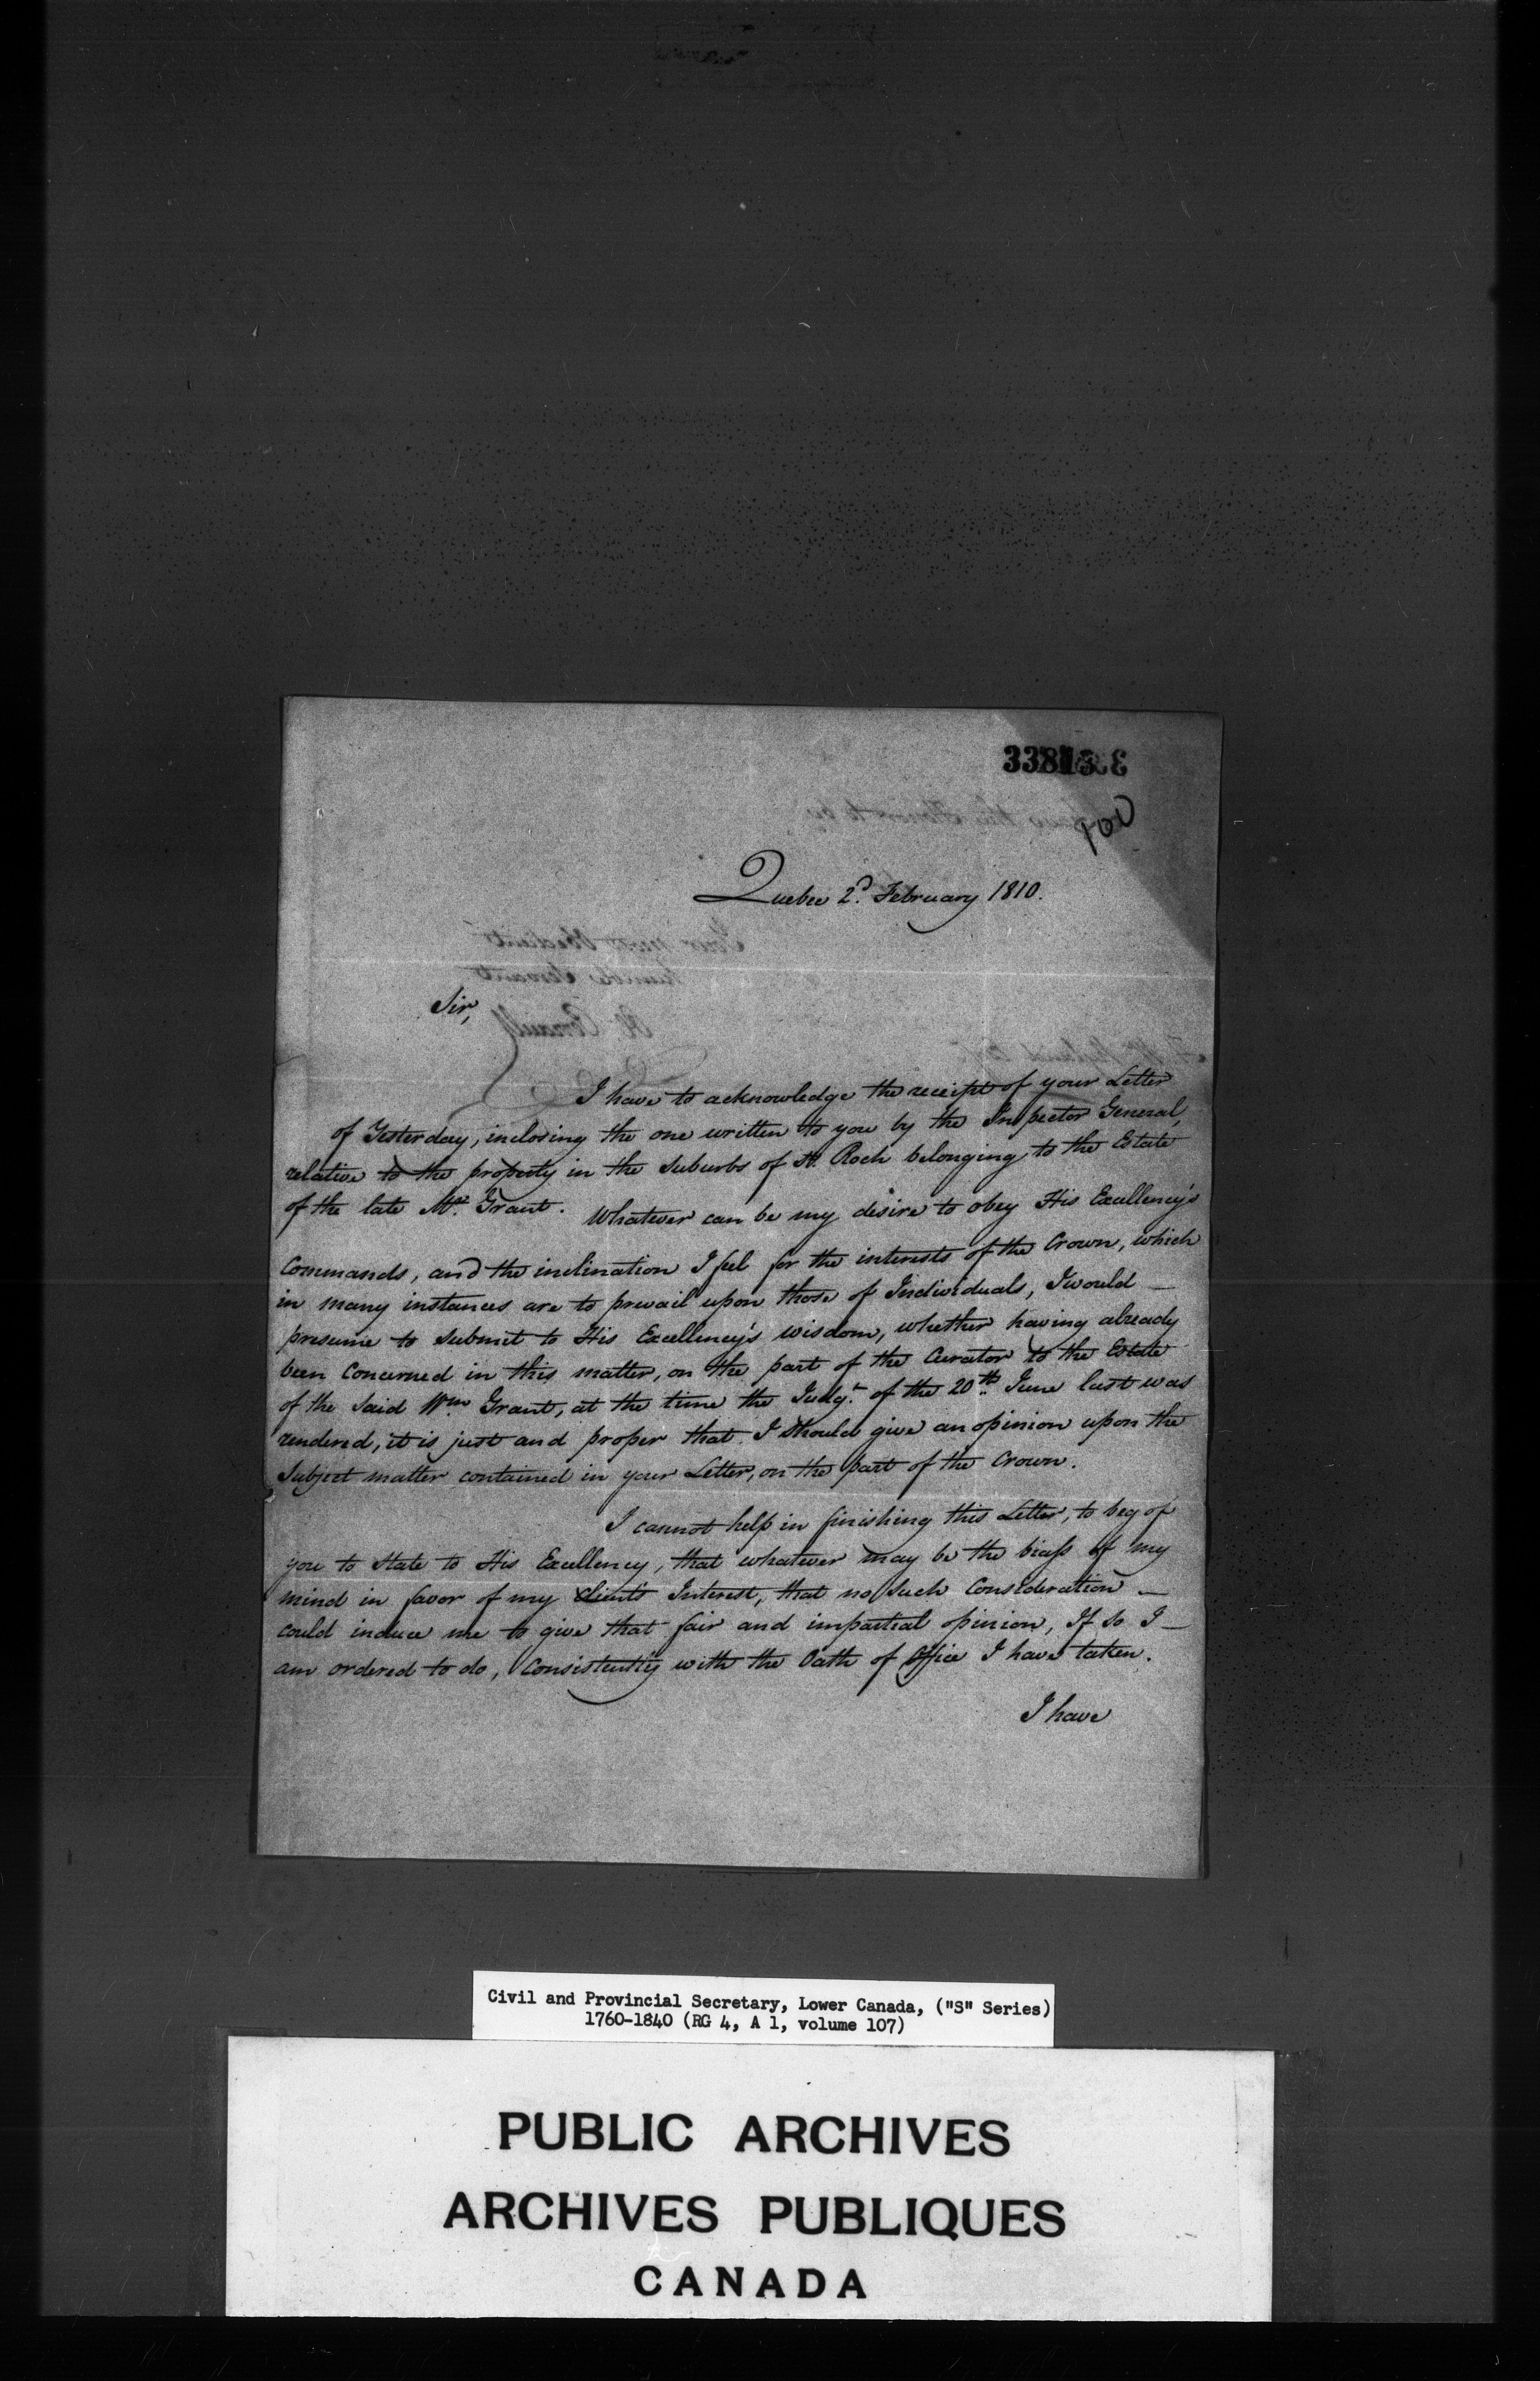 33813
100
Quebec 2d. February 1810.
Sir,
I have to acknowledge the receipt of your Letter
of Yesterday, inclosing the one written to you by the Inspector General,
relative to the property in the suburbs of St. Roch belonging to the Estate
of the late Mr. Grant. Whatever can be my desire to obey His Excellency's
Commands, and the inclination I feel for the interests of the Crown, which
in many instances are to prevail upon those of Individuals, I would —
presume to submit to His Excellency's wisdom, whether having already
been Concerned in this matter, on the part of the Curator to the Estate
of the said Wm. Grant, at the time the Judgt. of the 20th. June last was
rendered, it is just and proper that I should give an opinion upon the
Subject matter contained in your Letter, on the part of the Crown.
I cannot help in finishing this Letter, to beg of
you to State to His Excellency, that whatever may be the biass of my
mind in favor of my Client's Interest, that no such Consideration —
could induce me to give that fair and impartial opinion, If so I —
am ordered to do, Consistently with the Oath of Office I have taken.
I have
Civil and Provincial Secretary, Lower Canada, ("S" Series)
1760-1840 (RG 4, A 1, volume 107)
PUBLIC ARCHIVES
ARCHIVES PUBLIQUES
CANADA